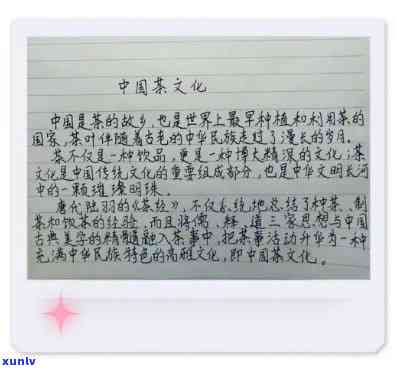 中国茶文化
中国是茶的故乡,也是世界上最早种植和利用茶的
国家,茶叶伴随着古老的中华民族走过了漫长的岁月。
茶不仅是一种饮品,更是一种博大精深的文化;茶
文化是中国传统文化的重要组成部分,也是中华文明长河
中的一颗璀璨明珠。
唐代陆羽的《茶经》,不仅系统地总结了种茶、制
茶和饮茶的经验,而且将儒、释、道三家思想与中国
古典美学的精髓融入茶事中,把茶事活动升华为一种
充满中华民族特色的高雅文化,即中国茶文化。
xunlv